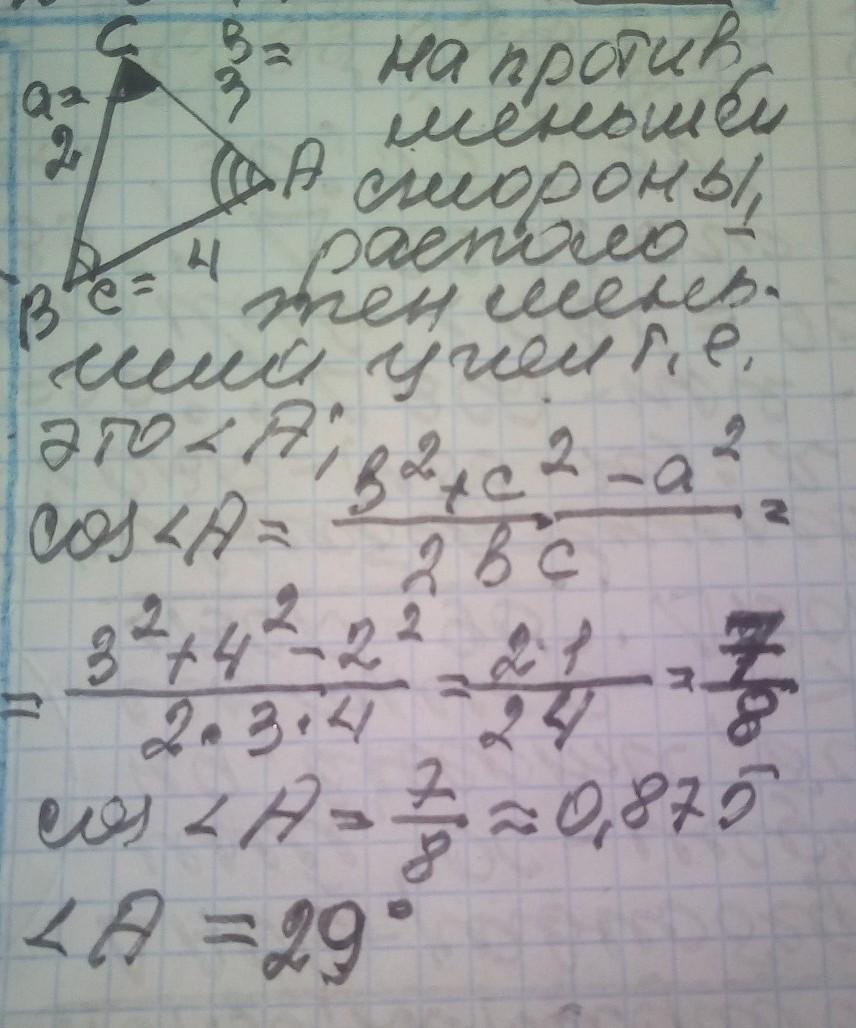 C
a=
2
в=
3
A
B
c= 4
напротив
меньшей
стороны,
располо-
жен мень-
ший угол т.е.
это <A;
cos <A = (в² + c² - a²) / (2вc) =
= (3² + 4² - 2²) / (2·3·4) = 21/24 = 7/8
cos <A = 7/8 ≈ 0,875
<A = 29°